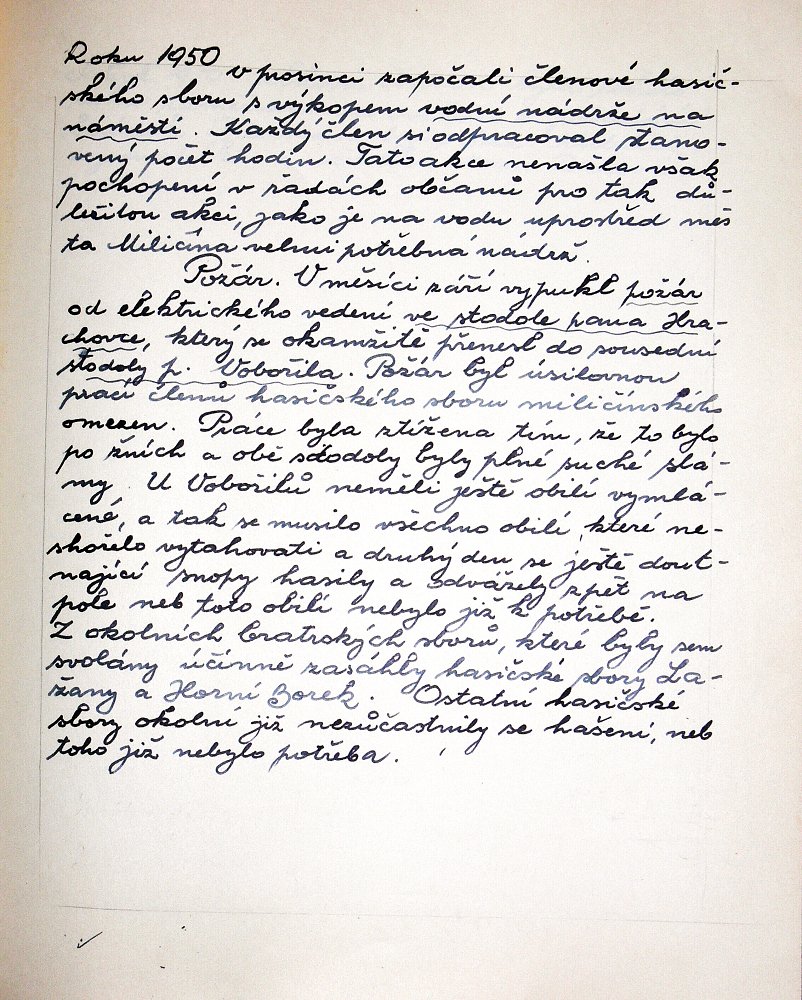 Roku 1950
v prosinci započali členové hasič-
ského sboru s výkopem vodní nádrže na
náměstí. Každý člen si odpracoval stano-
vený počet hodin. Tato akce nenašla však
pochopení v řadách občanů pro tak dů-
ležitou akci, jako je na vodu uprostřed měs
ta Miličína velmi potřebná nádrž.
Požár. V měsíci září vypukl požár
od elektrického vedení ve stodole pana Hra-
chovce, který se okamžitě přenesl do sousední
stodoly p. Vobořila. Požár byl úsilovnou
prací členů hasičského sboru miličínského
omezen. Práce byla ztížena tím, že to bylo
po žních a obě stodoly byly plné suché slá-
my. U Vobořilů neměli ještě obilí vymlá-
cené, a tak se musilo všechno obilí, které ne-
shořelo vytahovati a druhý den se ještě dout-
nající snopy hasily a odvážely zpět na
pole neb toto obilí nebylo již k potřebě.
Z okolních bratrských sborů, které byly sem
svolány účinně zasáhly hasičské sbory La-
žany a Horní Borek. Ostatní hasičské
sbory okolní již nezúčastnily se hašení, neb
toho již nebylo potřeba.